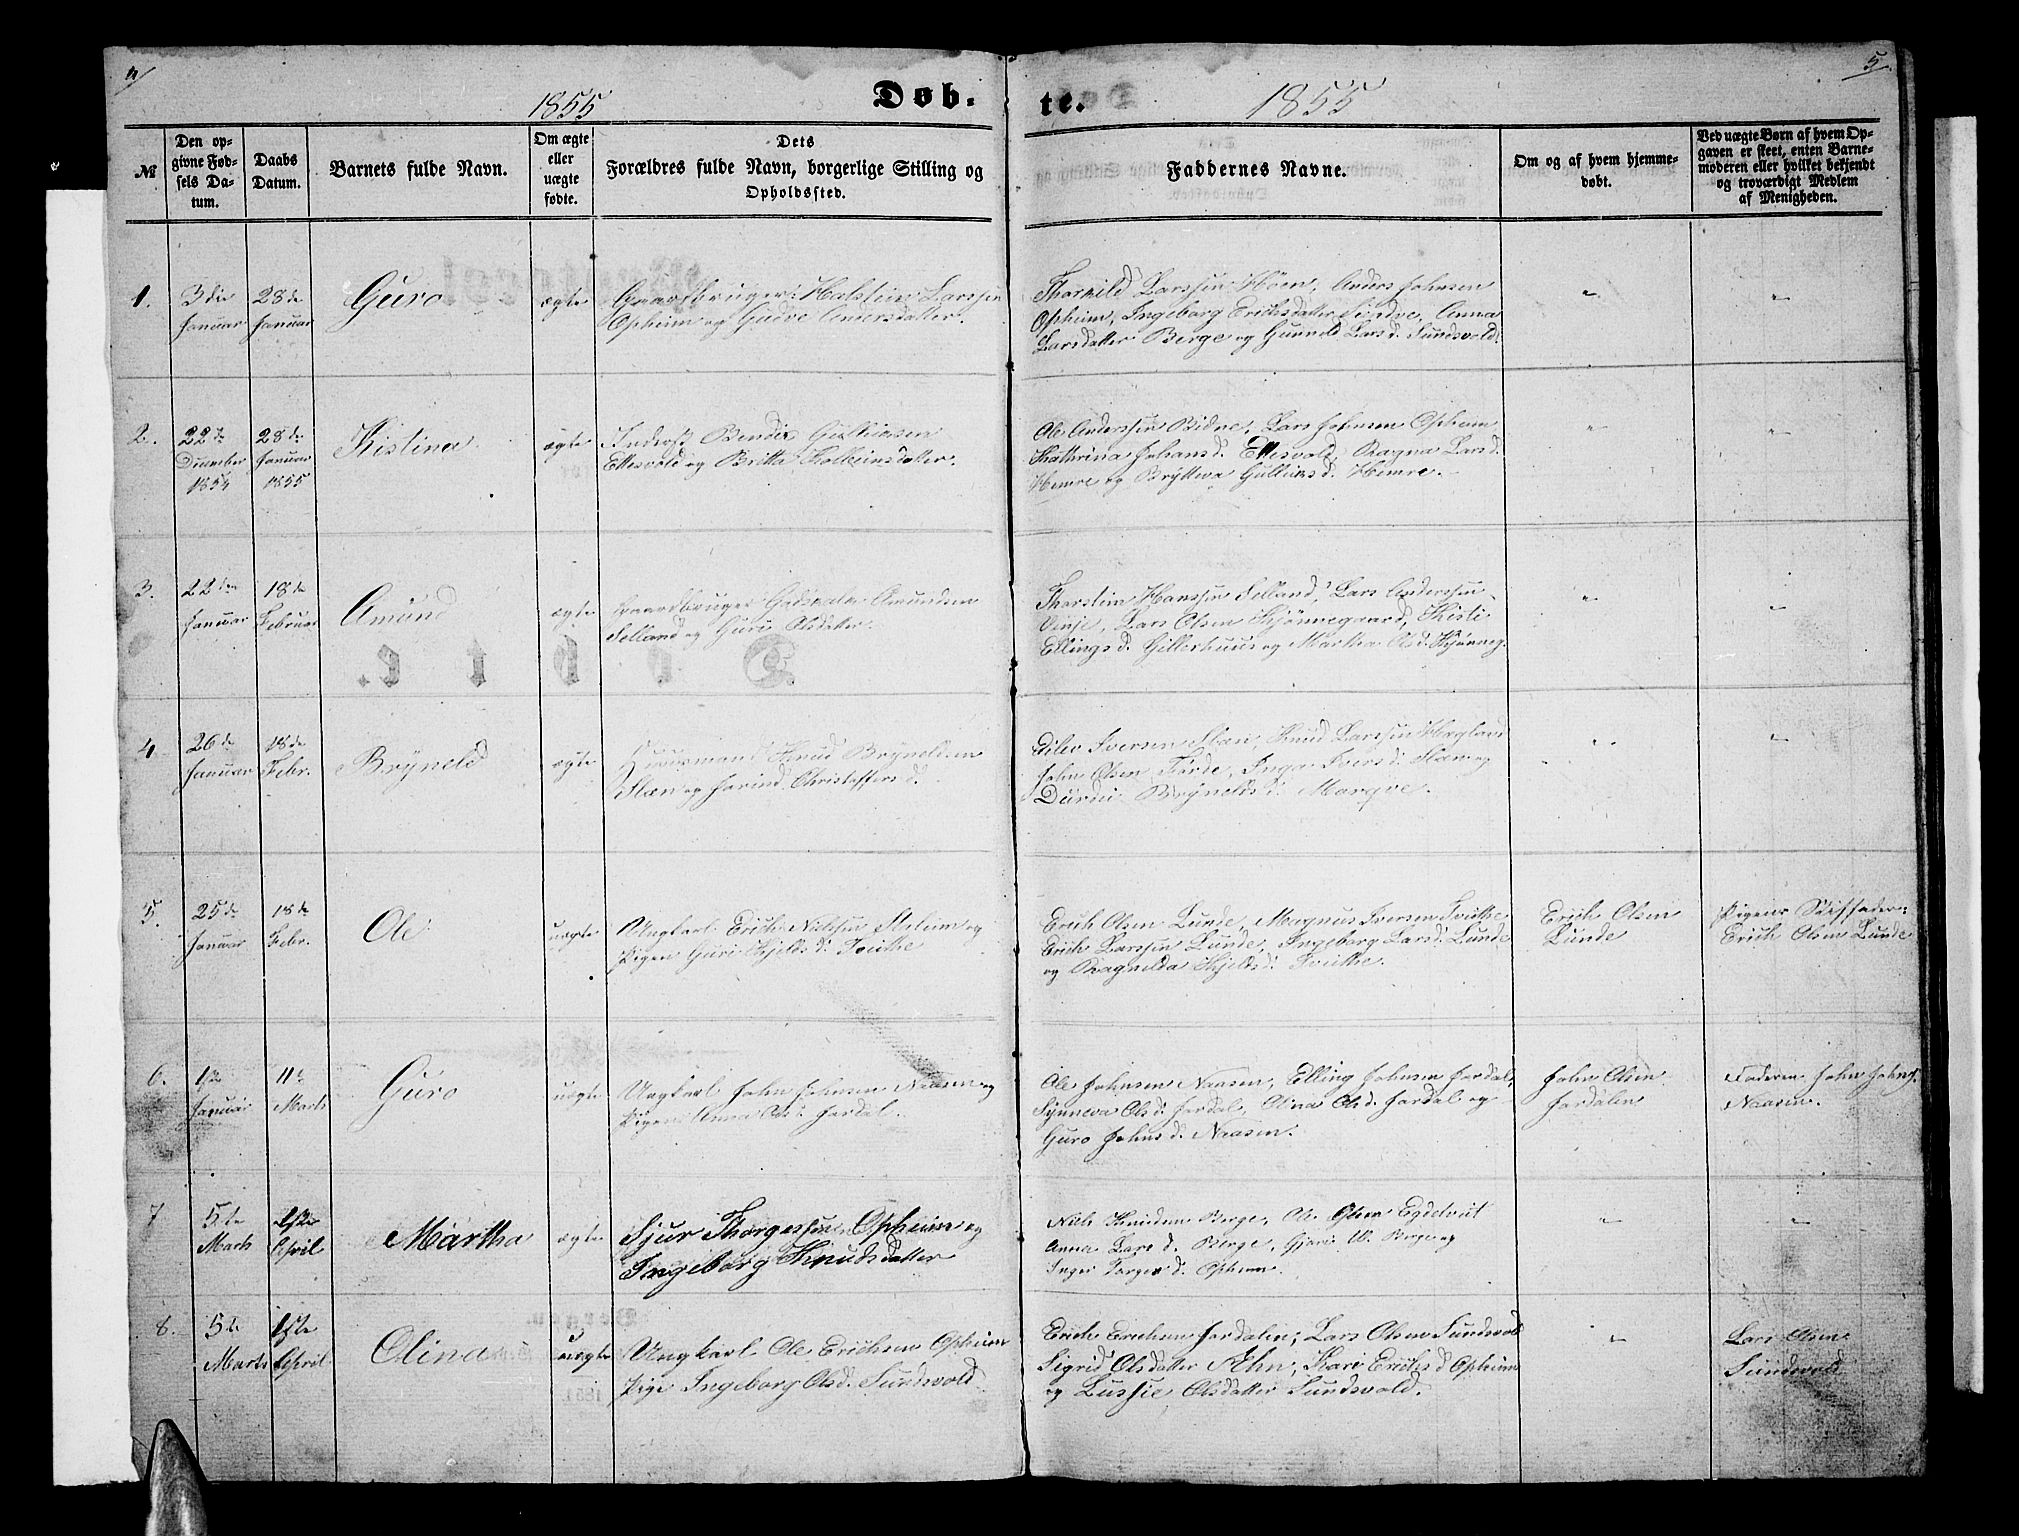 4/
5
1855
Døb-
te.
1855
№
Den op-
givne Fød-
sels Da-
tum.
Daabs
Datum.
Barnets fulde Navn.
Om ægte
eller
uægte
fødte.
Dets
Forældres fulde Navn, borgerlige Stilling og
Opholdssted.
Faddernes Navne.
Om og af hvem hjemme-
døbt.
Ved uægte Børn af hvem Op-
gaven er skeet, enten Barne-
moderen eller hvilket bekjendt
og troværdigt Medlem
af Menigheden.
1.
3die
Januar
28de
Januar
Guro
ægte
Gaardbruger Halstein Larssen
Opheim og Gudve Andersdatter.
Larssen Høen, Anders Johnsen
Opheim, Ingeborg Erichsdatter Sundve, Anna
Larsdatter Berge og Gunnild Larsd. Sundsvold.
"
"
2.
22de
December
1854
28de
Januar
1855
Kistina
ægte
Britta
Ole Anderssen Bidne, Lars Johnsen Opheim
Kathrina Johansd. Ragna Larsd.
Hemre og Gulliksd. Hemre.
"
"
3.
22den
Januar
18de
Februar
Amund
ægte
Gaardbruger Amundsen
Selland og Guri Olsdatter.
Thorstein Hanssen Selland, Lars Anderssen
Vinje, Lars Olsen Kjønnegaard, Kisti
Ellingsd. Gillerhuus og Martha Olsd. Kjønneg.
"
"
4
26de
Januar
18de
Febr.
Bryneld
ægte
Huusmand Knud Bryneldsen
Slæn og Christoffersd.
Iversen Slæn, Knud Larssen
John Olsen Førde, Inga Iversd. Slæn og
Durdei Bryneldsd. Marqve.
"
"
5.
25de
Januar
18de
Febr.
Ole
uægte
Ungkarl Erich Nielssen og
Pigen Guri Kjeldsd. Tvithe
Erich Olsen Lunde, Magnus Iversen Tvithe
Erich Larssen Lunde, Ingeborg Larsd. Lunde
og Ragnilda Kjeldsd. Tvithe.
Erich Olsen
Lunde
Pigens Stiffader
Erich Olsen Lunde
6.
1ste
Januar
11te
Marts
Guro
uægte
Ungkarl John Johnsen Naasen og
Pigen Anna Olsd. Jordal.
Ole Johnsen Naasen, Elling Johnsen Jordal,
Synneva Olsd. Jordal, Olina Olsd. Jordal og
Guro Johnsd. Naasen.
John Olsen
Jordalen
Faderen John Johns.
Naasen.
7
5te
Marts
1ste
April
Martha
ægte
Sjur Thorgerssen Opheim og
Ingeborg Knudsdatter
Niels Knudsen Berge, Ole Olsen
Anna Larsd. Berge, Berge og
Inger Opheim.
"
"
8.
5te
Marts
1ste
April
Olina
uægte
Ungkarl Ole Erichsen Opheim
Pige Ingeborg Olsd. Sundsvold
Erich Erichsen Jordalen, Lars Olsen Sundsvold
Sigrid Olsdatter Æhn, Kari Erichsd. Opheim
og Lussie Olsdatter Sundsvold.
"
Lars Olsen
Sundsvold